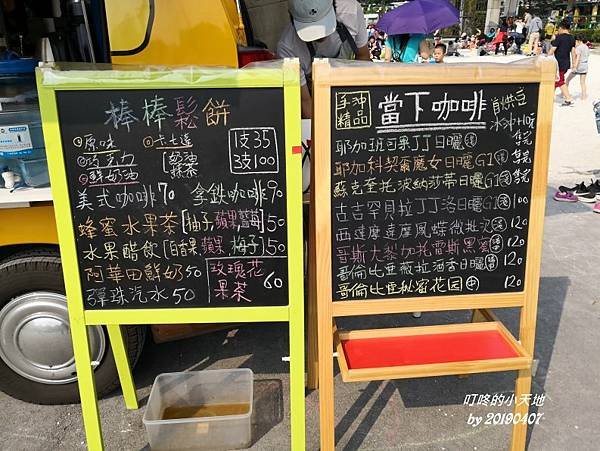 棒棒鬆餅
原味
卡士達
1支35
3支100
巧克力
鮮奶油
奶油
抹茶
美式咖啡70
拿鐵咖啡90
蜂蜜水果茶[柚子,蘋果,藍莓]50
水果醋飲[百香果,蘋果,梅子]50
阿華田鮮奶50
玫瑰花果茶 60
彈珠汽水50
手沖精品
當下咖啡
自烘豆
耶加班可果丁丁日曬
耶加科契爾魔女日曬G1
蘇克奎托波納莎蒂日曬G1
古吉罕貝拉丁丁洛日曬G1 100
西達摩達摩風蝶微批次 120
哥斯大黎加托雷斯黑蜜 120
哥倫比亞薇拉酒香日曬 120
哥倫比亞秘蜜花园 120
叮咚的小天地
by 20190407